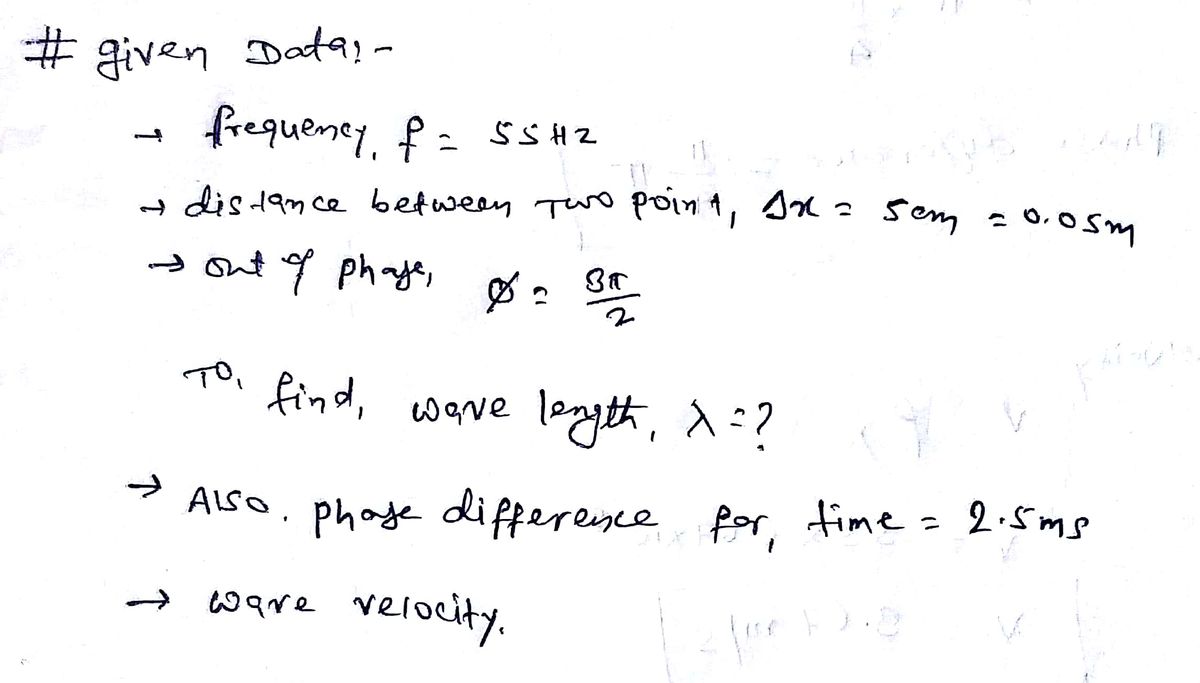 # given Data:-
→ frequency, f = 55 Hz
→ distance between Two point, Δx = 5cm = 0.05m
→ out of phase, ϕ = 3π/2
To, find, wave length, λ = ?
→ Also, phase difference for, time = 2.5ms
→ wave velocity.